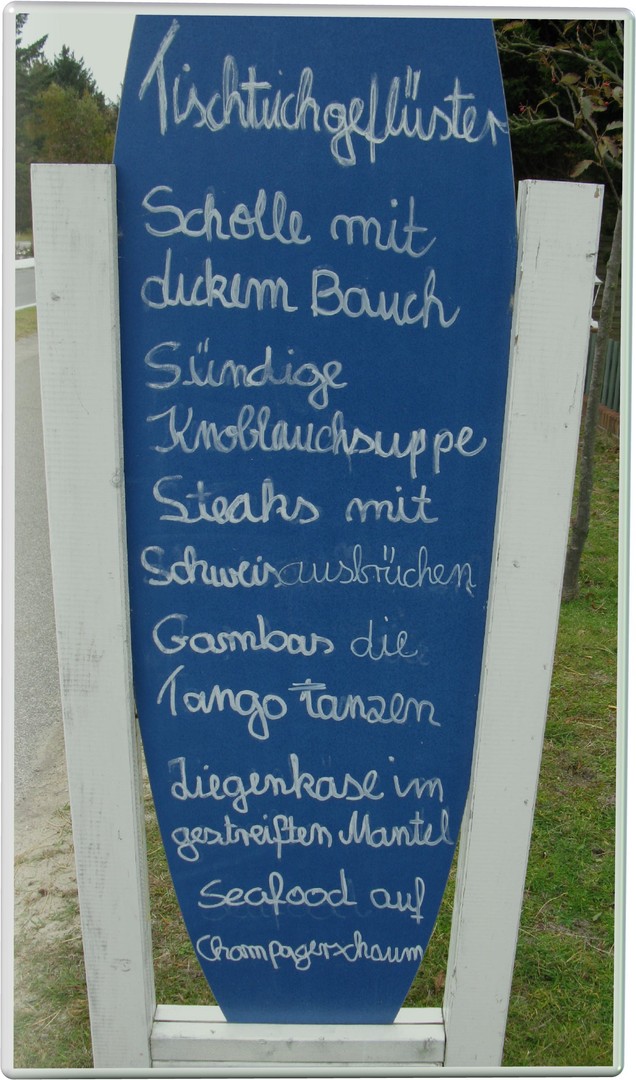 Tischtuchgeflüster
Scholle mit
dickem Bauch
Sündige
Knoblauchsuppe
Steaks mit
Schweisausbrüchen
Gambas die
Tango tanzen
Ziegenkäse im
gestreiften Mantel
Seafood auf
Champagerschaum